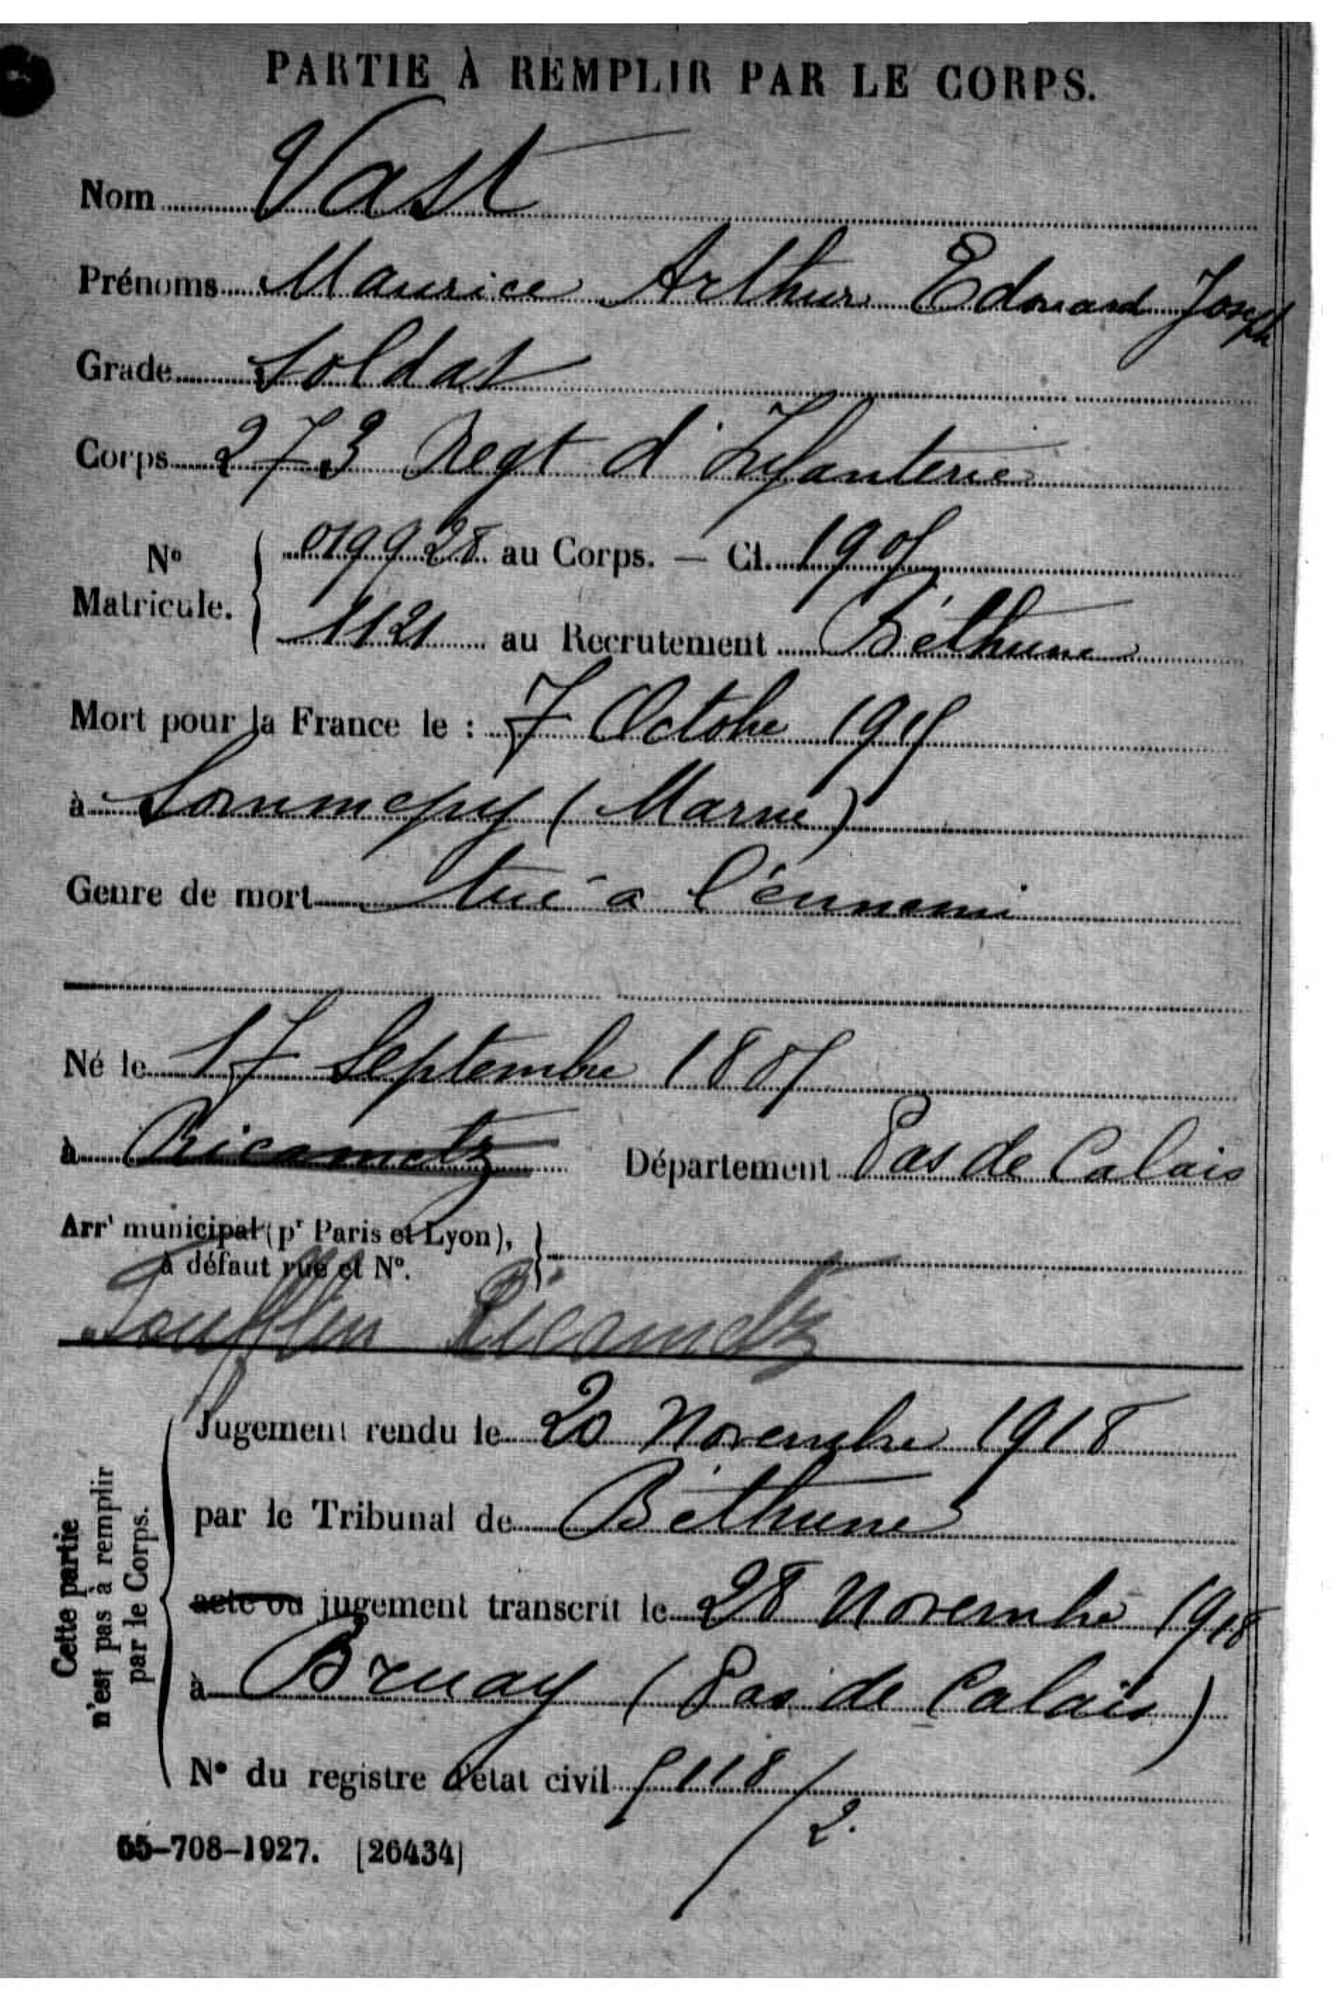 PARTIE À REMPLIR PAR LE CORPS.
Nom Vast
Prénoms Maurice Arthur Edouard Joseph
Grade Soldat
Corps 273 Regt d'Infanterie
No Matricule. 019928 au Corps. — Cl. 1905
1121 au Recrutement Béthune
Mort pour la France le : 7 Octobre 1915
à Sommepy (Marne)
Genre de mort tué à l'ennemi
Né le 17 Septembre 1885
à Ricametz Département Pas de Calais
Arrt municipal (pr Paris et Lyon),
à défaut rue et No.
Foufflin Ricametz
Cette partie n'est pas à remplir par le Corps.
Jugement rendu le 20 Novembre 1918
par le Tribunal de Béthune
acte ou jugement transcrit le 28 Novembre 1918
à Bruay (Pas de Calais)
No du registre d'état civil 5118/2.
65-708-1927. [26434]